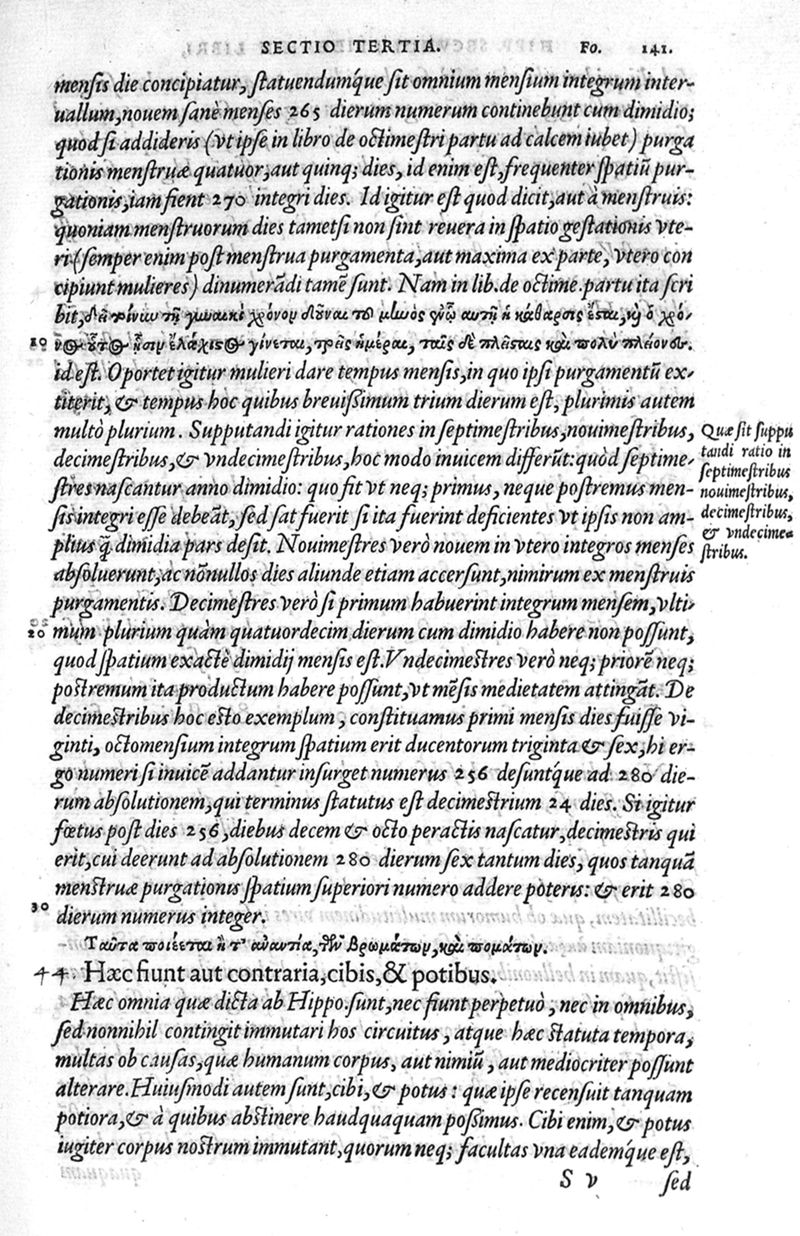 SECTIO TERTIA. Fo. 141.
mensis die concipiatur, statuendumq́ue sit omnium mensium integrum inter-
uallum, nouem sanè menses 265 dierum numerum continebunt cum dimidio;
quod si addideris (vt ipse in libro de octimestri partu ad calcem iubet) purga
tionis menstruæ quatuor, aut quinq; dies, id enim est, frequenter spatiũ pur-
gationis, iam fient 270 integri dies. Id igitur est quod dicit, aut à menstruis:
quoniam menstruorum dies tametsi non sint reuera in spatio gestationis vte-
ri (semper enim post menstrua purgamenta, aut maxima ex parte, vtero con
cipiunt mulieres) dinumerãdi tamẽ sunt. Nam in lib. de octime. partu ita scri
bit,
10
id est. Oportet igitur mulieri dare tempus mensis, in quo ipsi purgamentũ ex-
titerit, & tempus hoc quibus breuissimum trium dierum est, plurimis autem
multò plurium. Supputandi igitur rationes in septimestribus, nouimestribus,
decimestribus, & vndecimestribus, hoc modo inuicem differũt: quòd septime-
stres nascantur anno dimidio: quo fit vt neq; primus, neque postremus men-
sis integri esse debeãt, sed sat fuerit si ita fuerint deficientes vt ipsis non am-
plius q̃ dimidia pars desit. Nouimestres verò nouem in vtero integros menses
absoluerunt, ac nõnullos dies aliunde etiam accersunt, nimirum ex menstruis
purgamentis. Decimestres verò si primum habuerint integrum mensem, vlti-
20 mum plurium quàm quatuordecim dierum cum dimidio habere non possunt,
quod spatium exactè dimidij mensis est. Vndecimestres verò neq; priorẽ neq;
postremum ita productum habere possunt, vt mẽsis medietatem attingãt. De
decimestribus hoc esto exemplum, constituamus primi mensis dies fuisse vi-
ginti, octo mensium integrum spatium erit ducentorum triginta & sex, hi er-
go numeri si inuicẽ addantur insurget numerus 256 desuntq́ue ad 280 die-
rum absolutionem, qui terminus statutus est decimestrium 24 dies. Si igitur
fœtus post dies 256, diebus decem & octo peractis nascatur, decimestris qui
erit, cui deerunt ad absolutionem 280 dierum sex tantum dies, quos tanquã
menstruæ purgationis spatium superiori numero addere poteris: & erit 280
30 dierum numerus integer.
Ταῦτα ποιέεται ἢ τ' ἀναντία, τῶν βρωμάτων, καὶ πομάτων.
44. Hæc fiunt aut contraria, cibis, & potibus.
Hæc omnia quæ dicta ab Hippo. sunt, nec fiunt perpetuò, nec in omnibus,
sed nonnihil contingit immutari hos circuitus, atque hæc statuta tempora,
multas ob causas, quæ humanum corpus, aut nimiũ, aut mediocriter possunt
alterare. Huiusmodi autem sunt, cibi, & potus: quæ ipse recensuit tanquam
potiora, & à quibus abstinere haudquaquam possimus. Cibi enim, & potus
iugiter corpus nostrum immutant, quorum neq; facultas vna eademq́ue est,
S v sed
Quæ sit suppu
tandi ratio in
septimestribus
nouimestribus,
decimestribus,
& vndecime-
stribus.